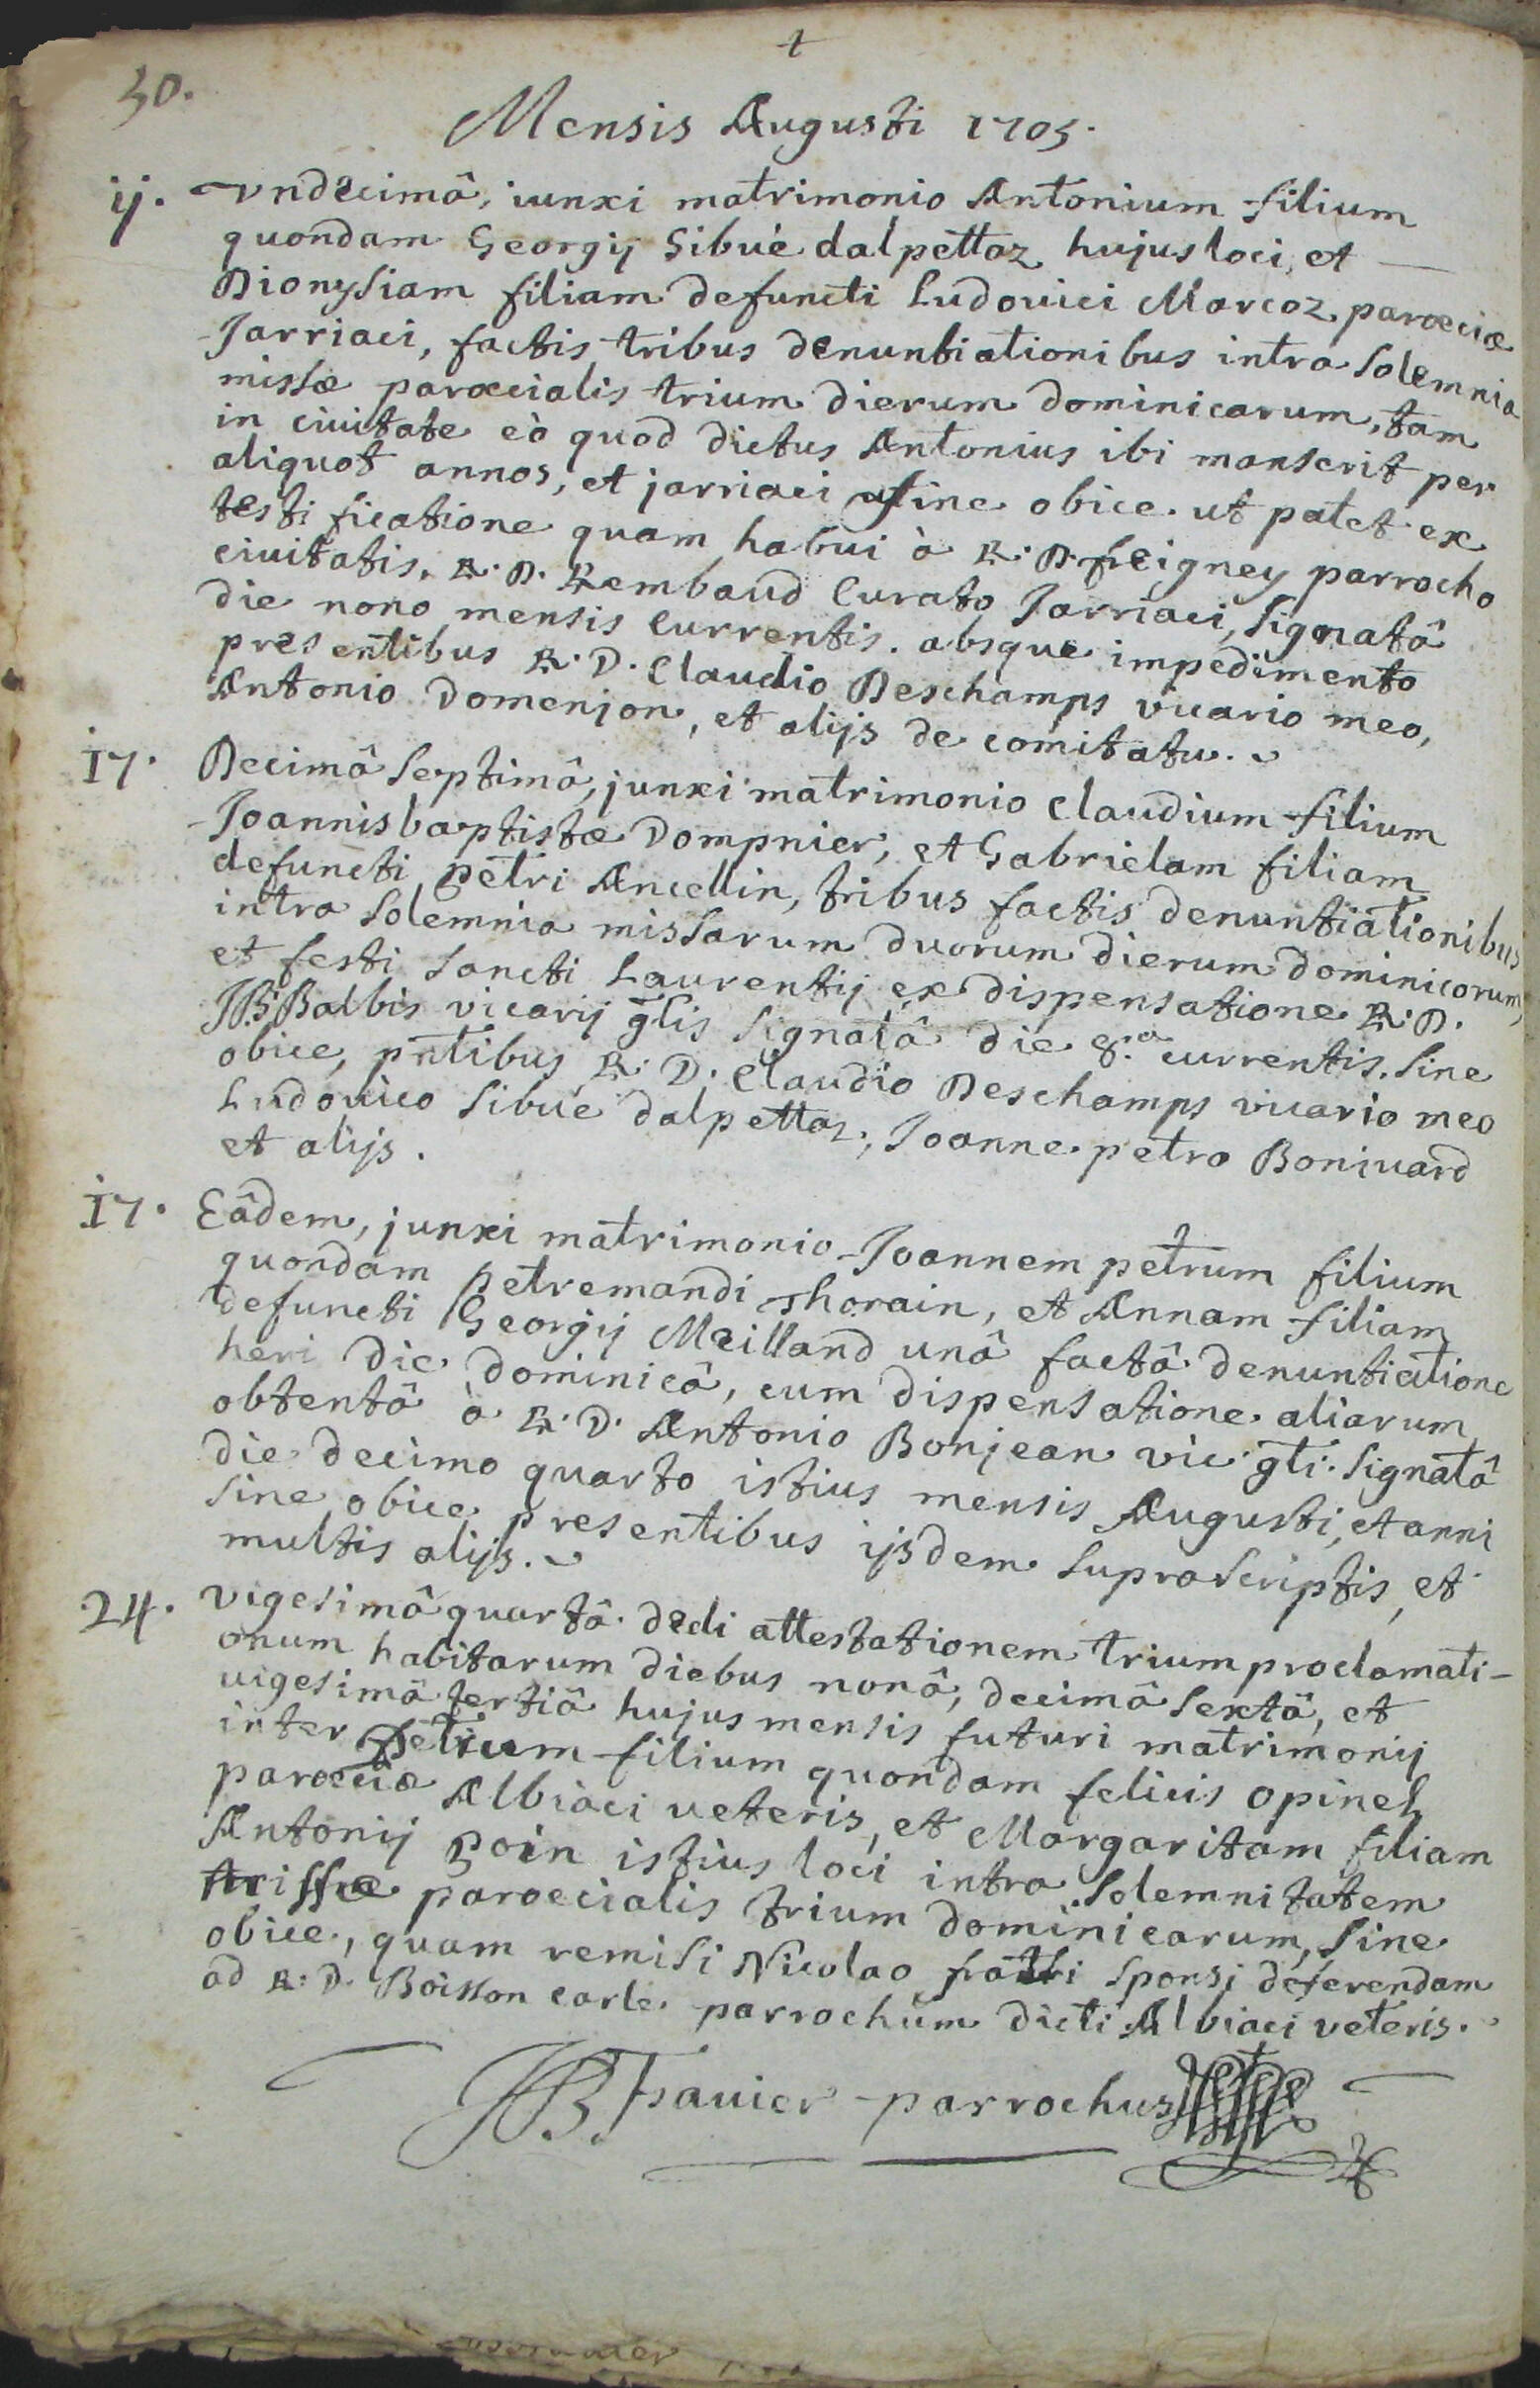 †
30.
Mensis Augusti 1705.
ij. vndecimâ, iunxi matrimonio Antonium filium
quondam Georgij Sibuë dalpettaz hujus loci, et
Dionysiam filiam defuncti Ludovici Marcoz paroeciæ
Jarriaci, factis tribus denuntiationibus intra solemnia
missæ paroecialis trium dierum dominicarum, tam
in ciuitate eò quod dictus Antonius ibi manserit per
aliquot annos, et jarriaci sine obice. ut patet ex
testificatione quam habui à R. D. feigney parrocho
ciuitatis, R. D. Rembaud Curato Jarriaci, signatâ
die nono mensis currentis. absque impedimento
presentibus R. D. Claudio Deschamps vicario meo,
Antonio Domenjon, et alijs de comitatu.
17. Decimâ septimâ, junxi matrimonio Claudium filium
Joannisbaptistæ Dompnier, et Gabrielam filiam
defuncti petri Ancellin, tribus factis denuntiationibus
intra solemnia missarum duorum dierum dominicorum,
et festi sancti Laurentij ex dispensatione R. D.
JB. Balbis vicarij gĩlis signatâ die 8.a currentis. sine
obice, pñtibus R. D. Claudio Deschamps vicario meo
Ludovico Sibuë dalpettaz, Joanne petro Bonivard
et alijs.
17. Eâdem, junxi matrimonio Joannem petrum filium
quondam petremandi Thorain, et Annam filiam
defuncti Georgij Meilland unâ factâ denuntiatione
heri die dominicâ, cum dispensatione aliarum
obtentâ à R. D. Antonio Bonjean vic. gĩli. signatâ
die decimo quarto istius mensis Augusti, et anni
sine obice presentibus ijsdem suprascriptis, et
multis alijs.
24. vigesimâ quartâ dedi attestationem trium proclamati-
onum habitarum diebus nonâ, decimâ sextâ, et
uigesimâ tertiâ hujus mensis futuri matrimonij
inter petrum filium quondam felicis opinel
paroeciæ Albiaci veteris, et Margaritam filiam
Antonij Poin istius loci intra solemnitatem
missæ paroecialis trium dominicarum, sine
obice, quam remisi Nicolao fratri sponsi deferendam
ad R. D. Boisson carle parrochum dicti Albiaci veteris.
JB. Favier parrochus